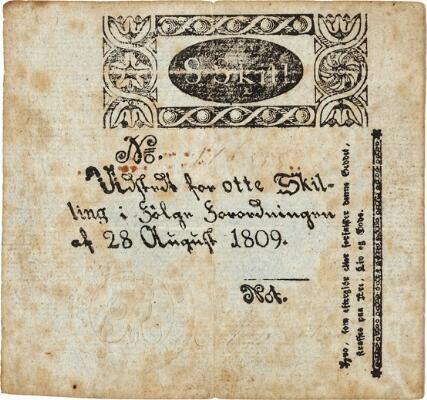 8 Skill.
No.
Udstedt for otte Skil-
ling i Følge Forordningen
af 28 August 1809.
Not.
Hvo, som eftergiør eller forfalsker denne Seddel,
straffes paa Ære, Liv og Gods.